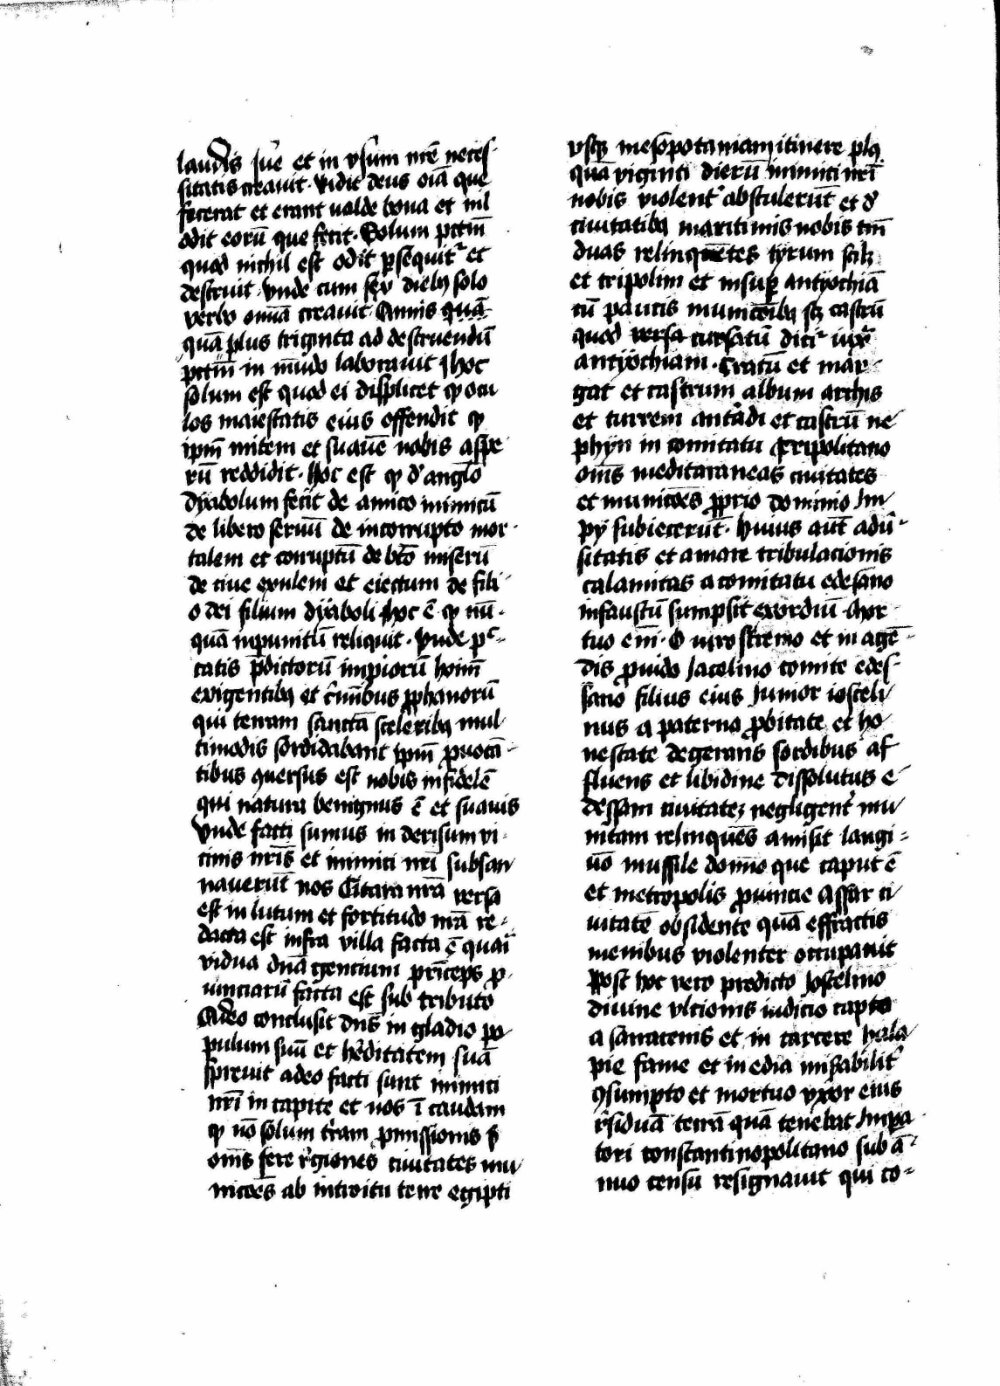 laudis sue et in vsum nr̄e neces-
sitatis creauit. vidit deus oīa que
fecerat et erant valde bona et nil
odit eorū que fecit. Solum pctm̄
quod nichil est odit ꝑsequitᷣ et
destruit. vnde cum sex diebꝫ solo
verbo omīa creauit Annis quā-
quā plus triginta ad destruendū
pctm̄ in mūdo laborauit Hoc
solum est quod ei displicet ꝙ ocu
los maiestatis eius offendit ꝙ
ipm̄ mitem et suauē nobis aspe
rū reddidit. Hoc est ꝙ d' anglo
dyabolum fecit de amico inimicū
de libero seruū de incorrupto mor-
talem et corruptū de bt̄o miserū
de ciue exulem et eiectum de fili-
o dei filium dyaboli Hoc ē ꝙ nū-
quā inpunitū reliquit. Vnde pc̄-
catis p̄dictorū impiorū hoim̄
exigentibꝫ et cᷣminibus ꝓphanorū
qui terram sanctā sceleribꝫ mul-
timodis sordidabant ipm̄ ꝓuocā-
tibus ꝯuersus est nobis infidelē
qui natura benignus ē et suauis
Vnde facti sumus in derisum vi-
cinis nr̄is et inimici nr̄i subsan-
nauerūt nos Citara nr̄a versa
est in lutum et fortitudo nr̄a re-
dacta est infra villa facta ē quasi
vidua dn̄a gentium prīceps ꝓ-
uinciarū facta est sub tributo
Adeo conclusit dn̄s in gladio po-
pulum suū et hēditatem suā
spreuit adeo facti sunt inimici
nr̄i in capite et nos ī caudam
ꝙ nō solum tᷣram ꝓmissionis
om̄s fere rᷣgiones ciuitates mu-
nicōes ab introitu terre egipti
vsqꝫ mesopotamiam itinere plꝰ
quā viginti dierū inimici nr̄i
nobis violentᷣ abstulerūt et d'
ciuitatibꝫ maritimis nobis tm̄
duas relinquētes tyrum scilꝫ
et tripolim et insuꝑ antyochiā
cū paucis municōibꝫ sꝫ castrū
quod versa cursatū dicitᷣ iuxᷓ
antyochiam. Cratū et mar-
gat et castrum album archis
et turrem antᷣadi et castrū ne-
phyn in comitatu tripolitano
om̄s meditaraneas ciuitates
et municōes ꝓprio dominio Im-
py subiecerūt. Huius aut̄ adū-
sitatis et amare tribulacionis
calamitas a comitatu edesano
infaustū sumpsit exordiū Mor-
tuo em̄. O viro strēno et in agē-
dis ꝓuido Jacelino comite edes-
sano filius eius Iunior iosceli-
nus a paterna ꝓbitate et ho-
nestate degerans sordibus af-
fluens et libidine dissolutus e-
dessam ciuitateꝫ negligentᷣ mu-
nitam relinquēs amisit langi-
uō mussile domīo que caput ē
et metropolis ꝓuincie Assar ci-
uitatē obsidente quā effractis
menibus violenter occupauit
Post hoc vero predicto Joscelino
diuine vltionis iudicio capto
a sarracenis et in carcere hala-
pie fame et inedia misᷣabilitᷣ
ꝯsumpto et mortuo vxor eius
rᷣsiduā terrā quā tenebat Impa-
tori constantinopolitano sub ā-
nuo censu resignauit qui co-